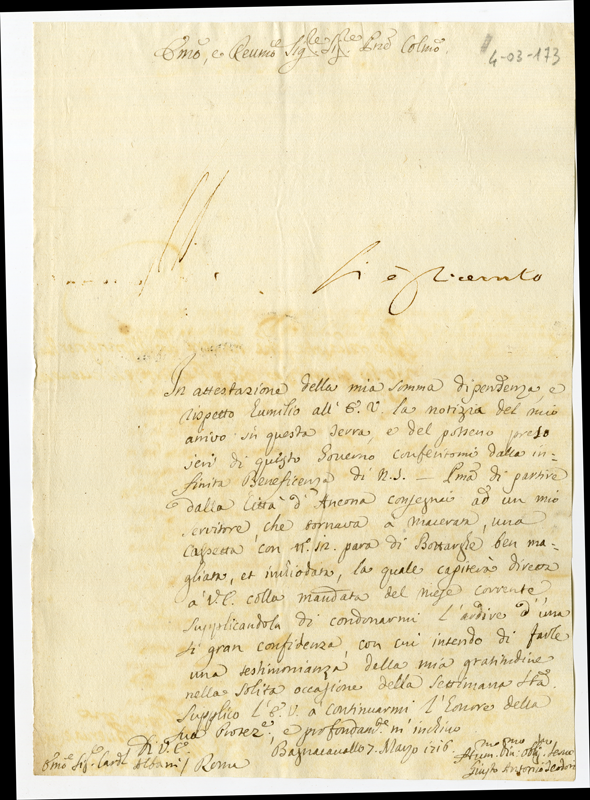 Emo, e Reumo Sigre Sigre Pne Colmo.
4-03-173
Si è Riceruto
In attestazione della mia somma dipendenza, e
rispetto Eumilio all'E. V. la notizia del mio
arrivo in questa Terra, e del possesso preso
ieri di questo Governo conferitomi dalla in-
finita Beneficenza di N. S. — Pma di partire
dalla Città d'Ancona consegnai ad un mio
servitore, che tornava a Macerata, una
Cassetta con No. 12. para di Bottarghe ben ma-
gliata, et inchiodata, la quale capiterà diretta
a V. E. colla mandata del mese corrente
supplicandola di condonarmi l'ardire d'una
sì gran confidenza, con cui intendo di farle
una testimonianza della mia gratitudine
nella solita occasione della Settimana Sta.
Supplico l'E. V. a continuarmi l'Honore della
sua Protez.e, e profondam.te m'inchino
Di V. E. Bagnacavallo 7. Marzo 1716.
Emo Sig. Card. Albani / Roma
Humo Diu. Obl. Serue
Giusto Antonio